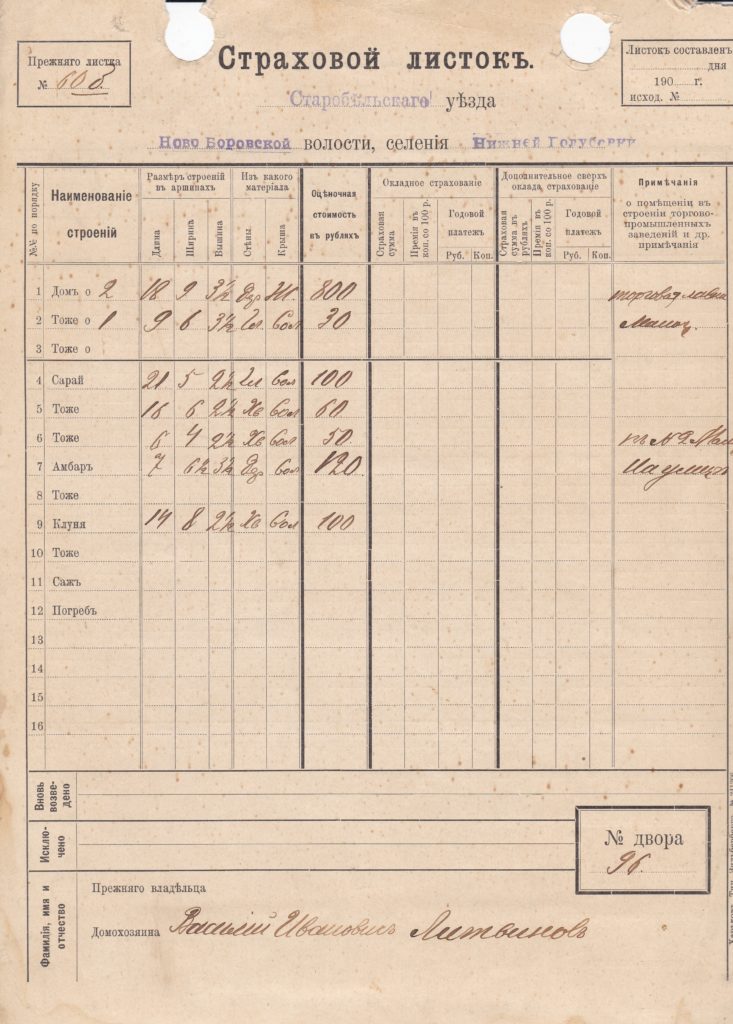 Прежняго листка
№ 60
Страховой листокъ.
Листокъ составленъ
дня
190 г.
исход. №
Старобѣльскаго уѣзда
Ново Боровской волости, селенія Нижней Голубовки
№№ по порядку
Наименованіе строеній
Размѣръ строеній въ аршинахъ
Длина
Ширина
Вышина
Изъ какого матеріала
Стѣны.
Крыша
Оцѣночная стоимость въ рубляхъ
Окладное страхованіе
Страховая сумма
Премія въ коп. со 100 р.
Годовой платежъ
Руб. Коп.
Дополнительное сверхъ оклада страхованіе
Страховая сумма въ рубляхъ
Премія въ коп. со 100 р.
Годовой платежъ
Руб. Коп.
Примѣчанія
о помѣщеніи въ строеніи торгово-промышленныхъ заведеній и др. примѣчанія
1 Домъ о 2 18 9 3½ Др Ж 800 торговая лавка
2 Тоже о 1 9 6 3½ Гл Сол 30
3 Тоже о
4 Сарай 21 5 2½ Гл Сол 100
5 Тоже 16 6 2½ Хв Сол 60
6 Тоже 6 4 2½ Хв Сол 50 № 2
7 Амбаръ 7 6½ 3½ Др Сол 120 На улицѣ
8 Тоже
9 Клуня 14 8 2½ Хв Сол 100
10 Тоже
11 Сажъ
12 Погребъ
13
14
15
16
Вновь возведено
Исключено
№ двора
96.
Фамилія, имя и отчество
Прежняго владѣльца
Домохозяина Василій Ивановичъ Литвиновъ